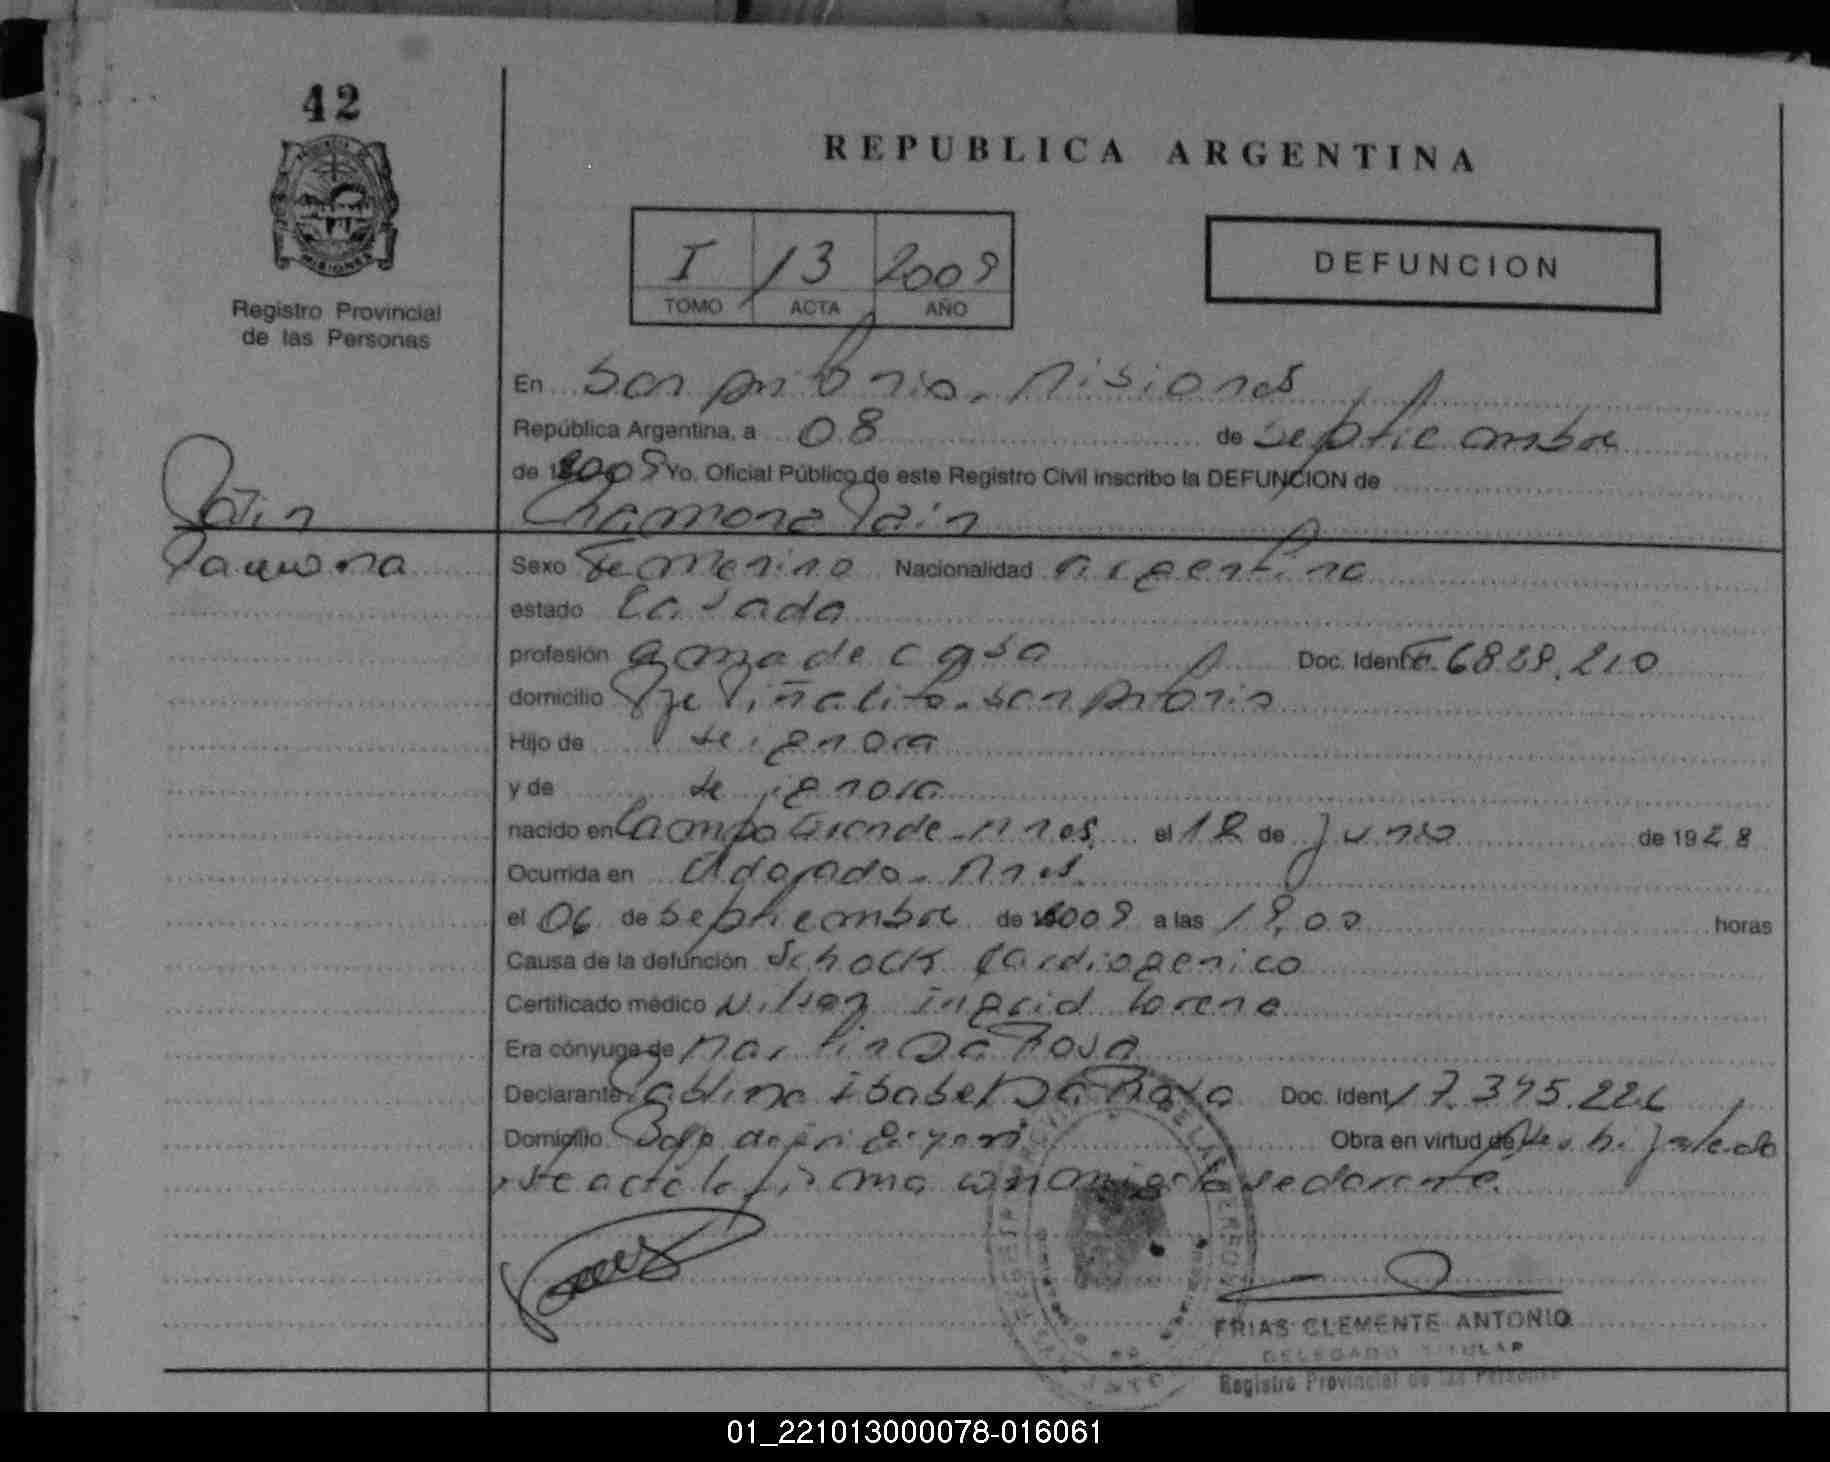 42
MISIONES
Registro Provincial
de las Personas
REPUBLICA ARGENTINA
I 13 2009
TOMO ACTA AÑO
DEFUNCION
En San Antonio. Misiones
República Argentina, a 08 de septiembre
de 2009 Yo, Oficial Público de este Registro Civil inscribo la DEFUNCION de
Ramona
Sexo Femenino Nacionalidad Argentina
estado Casada
profesión ama de casa Doc. Ident.
domicilio Pje Piñalito. San Antonio
Hijo de se ignora
y de se ignora
nacido en Campo Grande - Mnes. el 12 de Junio de 1928
Ocurrida en Eldorado - Mnes.
el 06 de septiembre de 2009 a las 19,00 horas
Causa de la defunción Schock Cardiogenico
Certificado médico Ingrid Lorena
Era cónyuge de Martin Da Rosa
Declarante Isabel Da Rosa Doc. Ident. 17.345.226
Domicilio Obra en virtud de
este acta la firma conmigo la declarante.
FRIAS CLEMENTE ANTONIO
DELEGADO TITULAR
Registro Provincial de las Personas
01_221013000078-016061